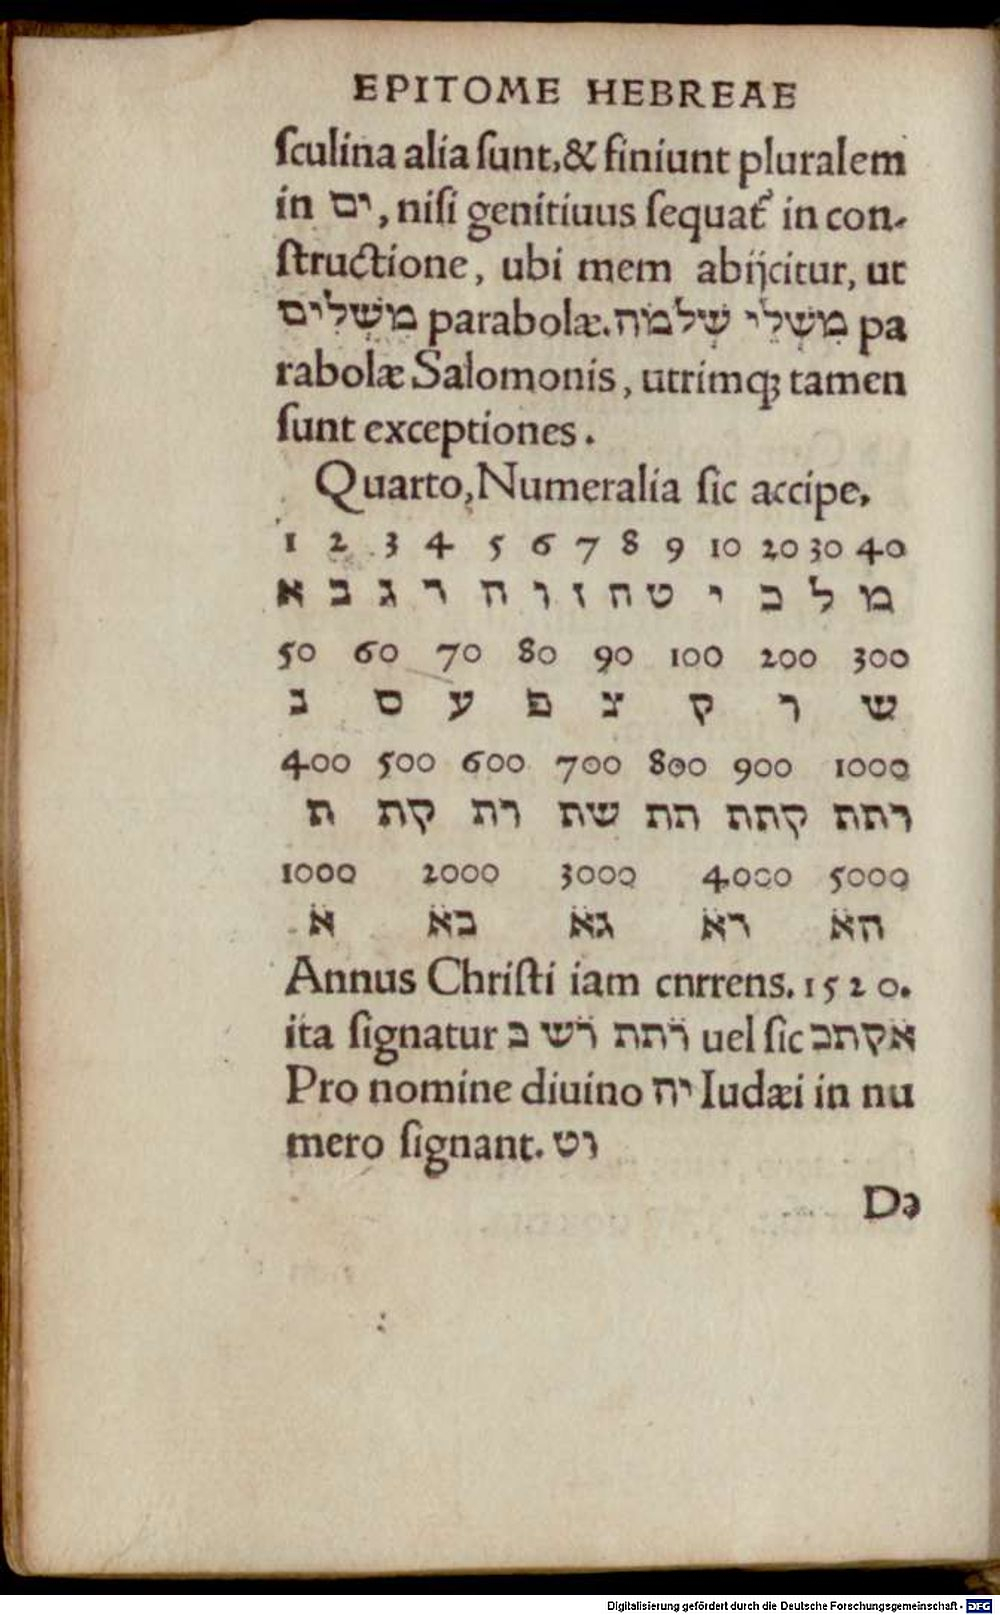 EPITOME HEBREAE
ſculina alia ſunt,& finiunt pluralem
in ים, niſi genitiuus ſequat᷑ in con-
ſtructione, ubi mem abijcitur, ut
מְשָׁלִים parabolæ. מִשְׁלֵי שְׁלֹמֹה pa
rabolæ Salomonis, utrimq; tamen
ſunt exceptiones.
Quarto, Numeralia ſic accipe,
1 2 3 4 5 6 7 8 9 10 20 30 40
א ב ג ד ה ו ז ח ט י כ ל מ
50 60 70 80 90 100 200 300
נ ס ע פ צ ק ר ש
400 500 600 700 800 900 1000
ת קת רת שת תת קתת רתת
1000 2000 3000 4000 5000
א̈ בא̈ גא̈ דא̈ הא̈
Annus Chriſti iam cnrrens. 1520.
ita ſignatur ר̈תת ר̈ש כ uel ſic א̈קתכ
Pro nomine diuino יה Iudæi in nu
mero ſignant. טו
De
Digitalisierung gefördert durch die Deutsche Forschungsgemeinschaft - DFG